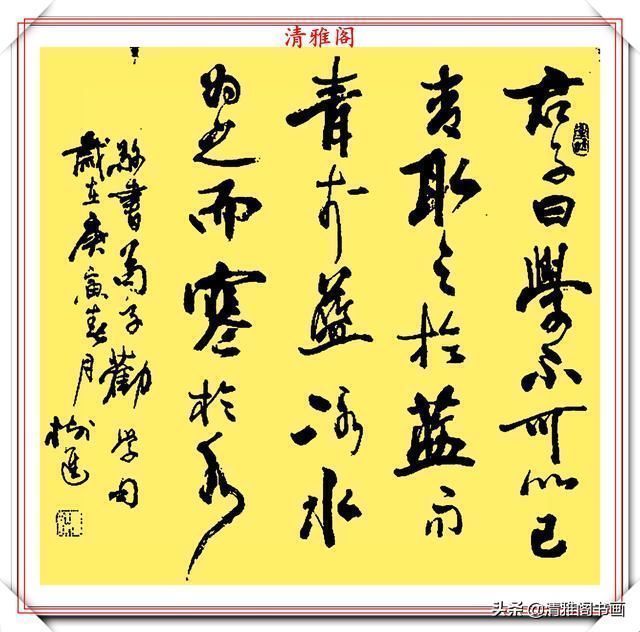 清雅阁
君子曰學不可以已
青取之於藍而
青於藍冰水
為之而寒於水
書荀子勸學句
歲在庚寅春月
头条 @清雅阁书画